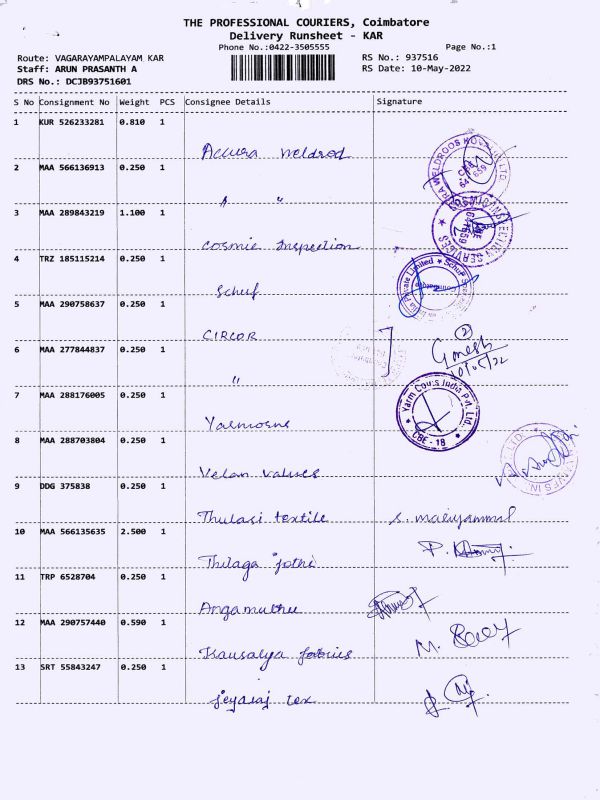 THE PROFESSIONAL COURIERS, Coimbatore
Delivery Runsheet - KAR
Phone No.:0422-3505555
Page No.:1
Route: VAGARAYAMPALAYAM KAR
RS No.: 937516
Staff: ARUN PRASANTH A
RS Date: 10-May-2022
DRS No.: DCJB93751601
S No Consignment No Weight PCS Consignee Details Signature
1 KUR 526233281 0.810 1
Accura Weldrod
2 MAA 566136913 0.250 1
"
3 MAA 289843219 1.100 1
Cosmic Inspection
4 TRZ 185115214 0.250 1
Schuf
5 MAA 290758637 0.250 1
CIRCOR
2
6 MAA 277844837 0.250 1
Ganesh
10/05/22
"
7 MAA 288176005 0.250 1
Yarm Couis India Pvt. Ltd.
CBE - 18
8 MAA 288703804 0.250 1
Velan Valves
9 DDG 375838 0.250 1
Thulasi textile S. mariyammal
10 MAA 566135635 2.500 1
Thilaga jothi P.
11 TRP 6528704 0.250 1
Angamuthu
12 MAA 290757440 0.590 1
Kausalya fabrics M.
13 SRT 55843247 0.250 1
jeyaraj tex